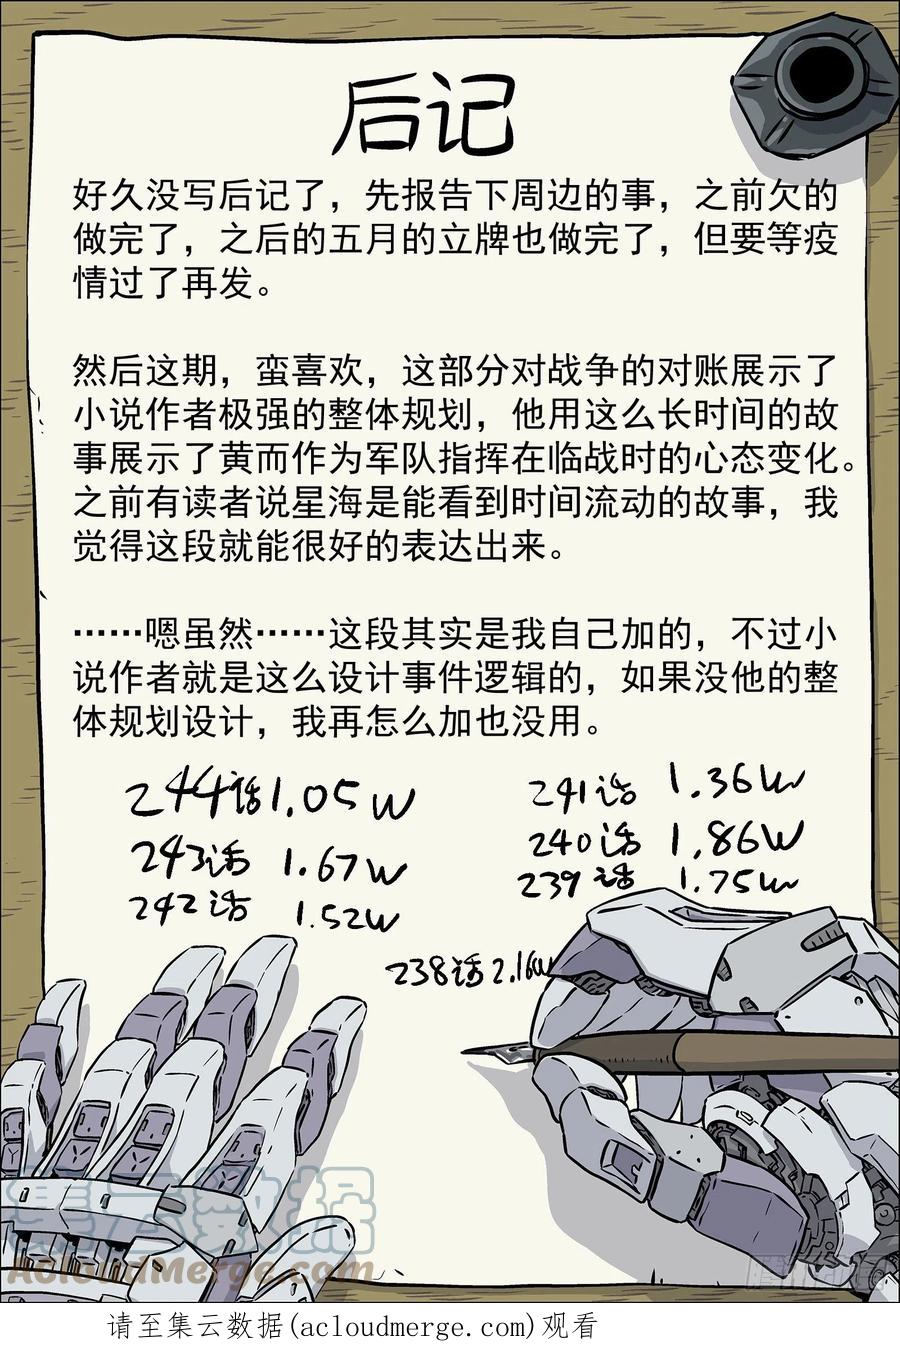 后记
好久没写后记了，先报告下周边的事，之前欠的
做完了，之后的五月的立牌也做完了，但要等疫
情过了再发。
然后这期，蛮喜欢，这部分对战争的对账展示了
小说作者极强的整体规划，他用这么长时间的故
事展示了黄而作为军队指挥在临战时的心态变化。
之前有读者说星海是能看到时间流动的故事，我
觉得这段就能很好的表达出来。
……嗯虽然……这段其实是我自己加的，不过小
说作者就是这么设计事件逻辑的，如果没他的整
体规划设计，我再怎么加也没用。
244话1.05W
243话 1.67W
242话 1.52W
241话 1.36W
240话 1.86W
239话 1.75W
238话 2.16W
集云数据
AcloudMerge.com
腾讯动漫
请至集云数据(acloudmerge.com)观看